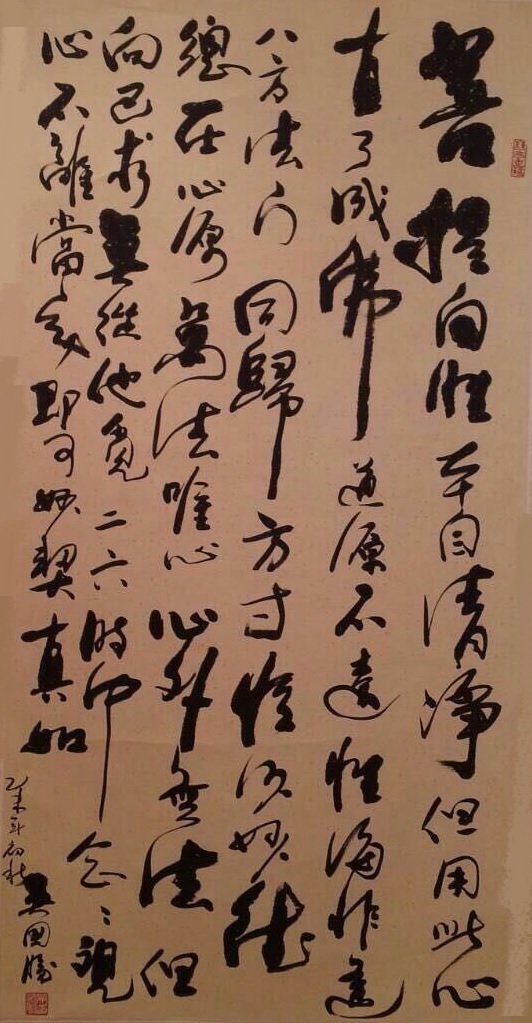 菩提自性本自清淨但用此心
直了成佛道源不遠性海非遙
八方法门同歸方寸恒沙妙德
總在心源萬法唯心心外無法但
向己求莫從他覓二六時中念〻觀
心不離當處即可妙契真如
乙未年初秋
吴國勝